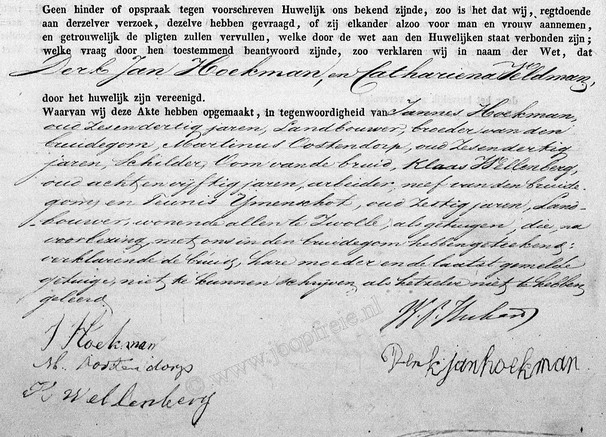 Geen hinder of opspraak tegen voorschreven Huwelijk ons bekend zijnde, zoo is het dat wij, regtdoende
aan derzelver verzoek, dezelve hebben gevraagd, of zij elkander alzoo voor man en vrouw aannemen,
en getrouwelijk de pligten zullen vervullen, welke door de wet aan den Huwelijken staat verbonden zijn;
welke vraag door hen toestemmend beantwoord zijnde, zoo verklaren wij in naam der Wet, dat
Derk Jan Hoekman, en Cathariena Veldman,
door het huwelijk zijn vereenigd.
Waarvan wij deze Akte hebben opgemaakt, in tegenwoordigheid van Jannes Hoekman,
oud zesendertig jaren, Landbouwer, broeder van den
bruidegom, Martinus Oostendorp, oud zesendertig
jaren, Schilder, Oom van de bruid, Klaas Wellenberg,
oud acht en vijftig jaren, arbeider, neef van den bruide-
gom, en Teunis IJmenschot, oud zestig jaren, Land-
bouwer, wonende allen te Zwolle, als getuigen, die, na
voorlezing, met ons en den bruidegom hebben geteekend;
verklarende de bruid, hare moeder en de laatst gemelde
getuige, niet te kunnen schrijven als hetzelve niet te hebben
geleerd
J Hoekman
M. Oostendorp
K Wellenberg
Derk jan hoekman
© www.jcopfreie.nl